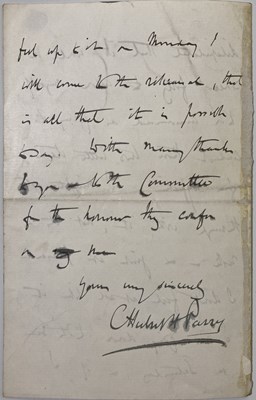 feel up to it on Monday! I
will come to the rehearsal, that
is all that it is possible
to say. With many thanks
to you & to the Committee
for the honour they confer
on me
Yours very sincerely
C Hubert H Parry